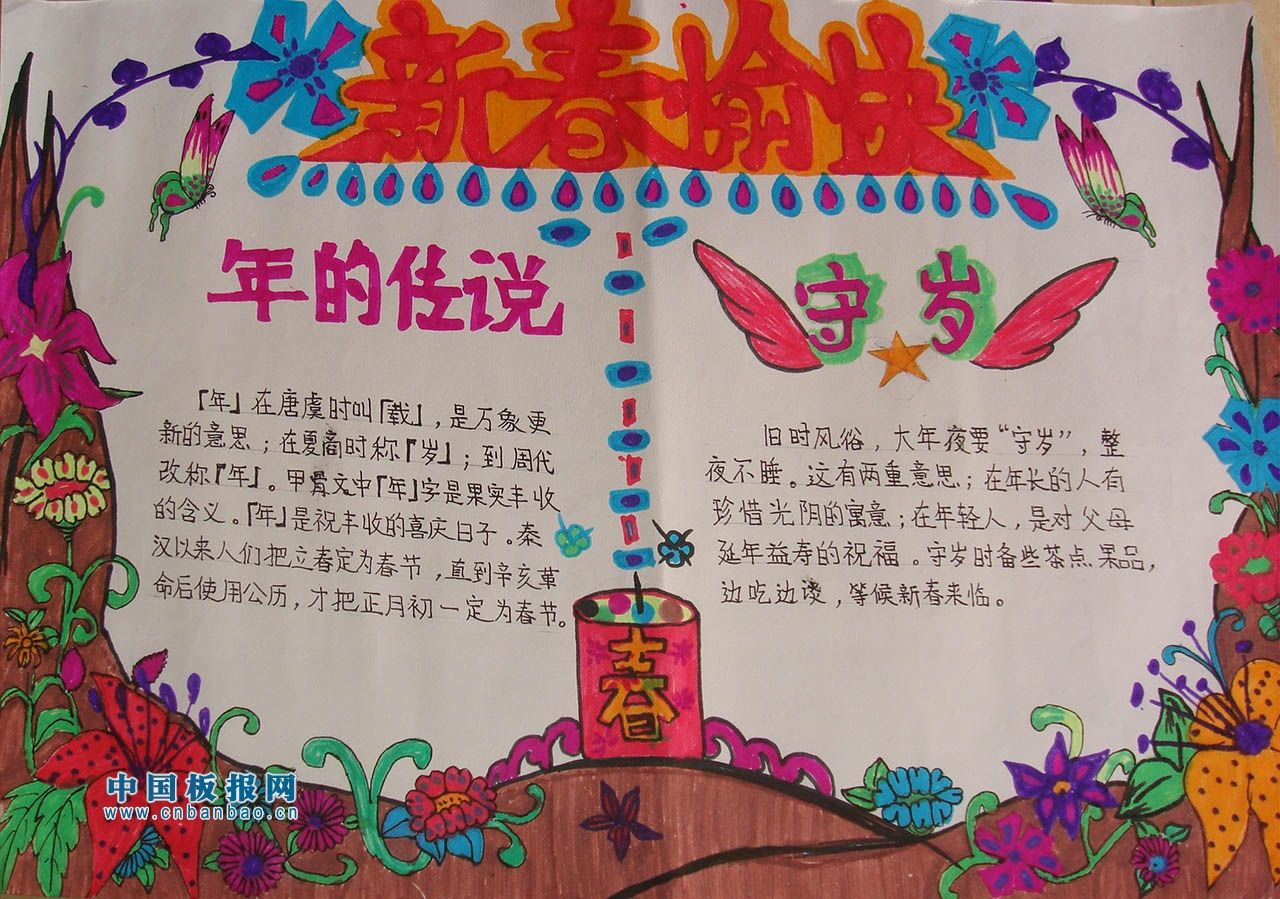 新春愉快
年的传说
『年』在唐虞时叫『载』，是万象更
新的意思；在夏商时称『岁』；到周代
改称『年』。甲骨文中『年』字是果实丰收
的含义。『年』是祝丰收的喜庆日子。秦
汉以来人们把立春定为春节，直到辛亥革
命后使用公历，才把正月初一定为春节。
守岁
旧时风俗，大年夜要“守岁”，整
夜不睡。这有两重意思；在年长的人有
珍惜光阴的寓意；在年轻人，是对父母
延年益寿的祝福。守岁时备些茶点果品，
边吃边，等候新春来临。
春
中国板报网
www.cnbanbao.cn